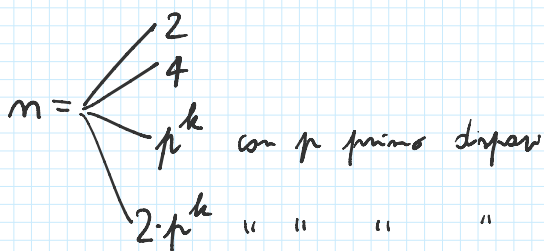 2
4
n = p^k con p primo dispari
2·p^k " " " "